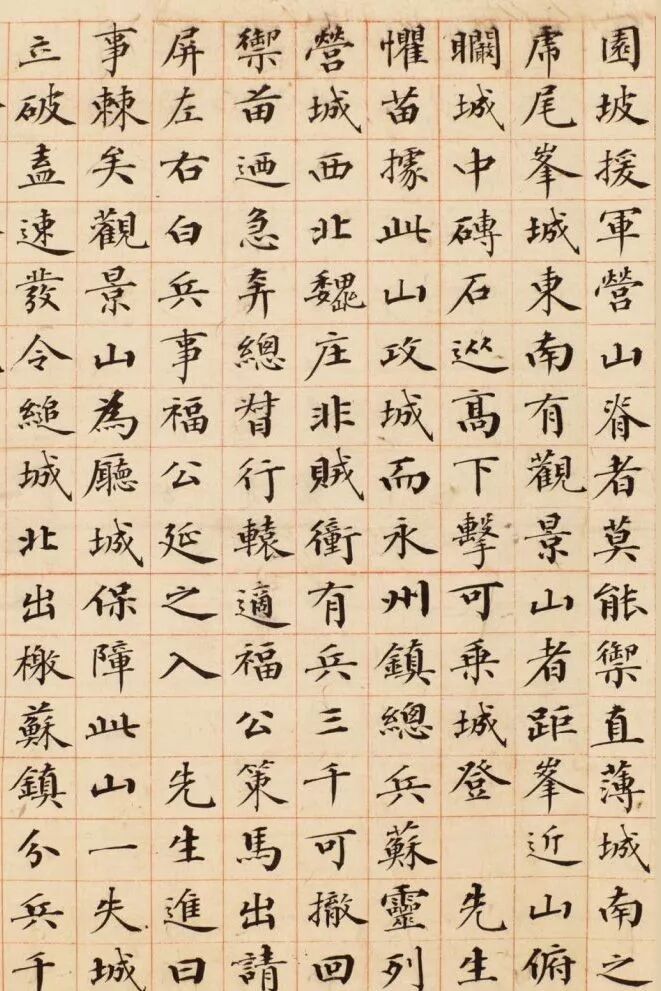 園坡援軍營山脊者莫能禦直薄城南之
虎尾峯城東南有觀景山者距峯近山俯
矙城中磚石從高下擊可乗城登　先生
懼苗據此山攻城而永州鎮總兵蘇靈列
營城西北魏庄非賊衝有兵三千可撤回
禦苗迺急奔總督行轅適福公策馬出請
屏左右白兵事福公延之入　先生進曰
事棘矣觀景山為廳城保障此山一失城
立破盍速發令縋城北出檄蘇鎮分兵千